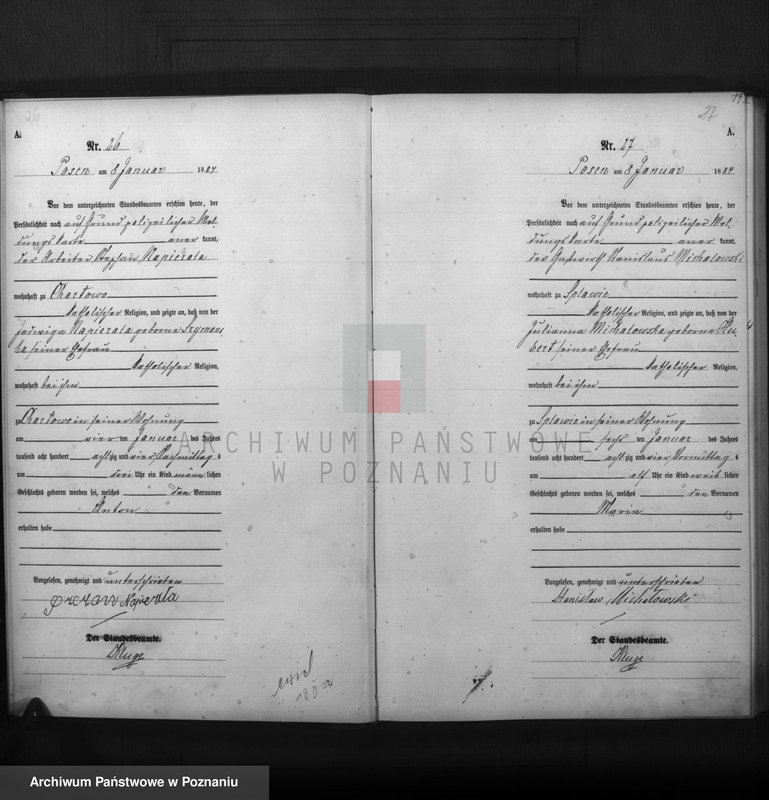 26
A.
Nr. 26
Posen am 8 Januar 1884
Vor dem unterzeichneten Standesbeamten erschien heute, der
Persönlichkeit nach auf Grund polizeilicher Mel-
dungskarte aner kannt,
der Arbeiter Stephan Napierala
wohnhaft zu Chartowo
katholischer Religion, und zeigte an, daß von der
Jadwiga Napierala geborne Szymans
ka seiner Ehefrau
katholischer Religion,
wohnhaft bei ihm
zu Chartowo in seiner Wohnung
am vier ten Januar des Jahres
tausend acht hundert acht zig und vier Nachmittag s
um drei Uhr ein Kind männ lichen
Geschlechts geboren worden sei, welches den Vornamen
Anton
erhalten habe
Vorgelesen, genehmigt und unterschrieben
Napierała
Der Standesbeamte.
Kluge
27
A.
Nr. 27
Posen am 8 Januar 1884
Vor dem unterzeichneten Standesbeamten erschien heute, der
Persönlichkeit nach auf Grund polizeilicher Mel-
dungskarte aner kannt,
der Gastwirth Stanislaus Michalowski
wohnhaft zu Splawie
katholischer Religion, und zeigte an, daß von der
Julianna Michalowska geborne Hu-
bert seiner Ehefrau
katholischer Religion,
wohnhaft bei ihm
zu Splawie in seiner Wohnung
am sechs ten Januar des Jahres
tausend acht hundert acht zig und vier Vormittag s
um elf Uhr ein Kind weib lichen
Geschlechts geboren worden sei, welches den Vornamen
Maria
erhalten habe
Vorgelesen, genehmigt und unterschrieben
Stanisław Michałowski
Der Standesbeamte.
Kluge
ARCHIWUM PAŃSTWOWE
W POZNANIU
Archiwum Państwowe w Poznaniu